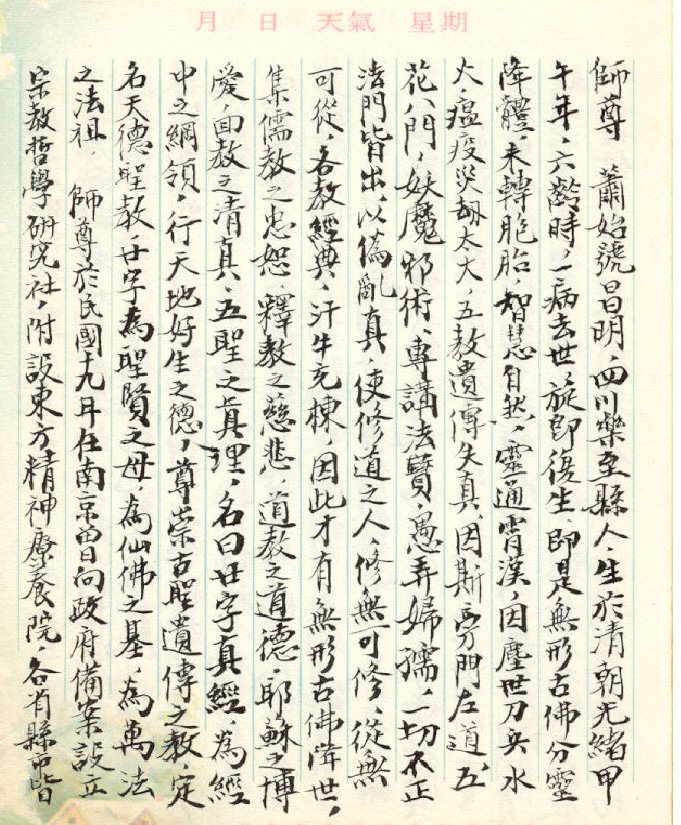 月 日 天氣 星期
師尊 蕭始號昌明，四川樂至縣人，生於清朝光緒甲
午年，六齡時，一病去世，旋即復生，即是無形古佛分靈
降體，未轉胞胎，智慧自然，靈通霄漢，因塵世刀兵水
火，瘟疫災劫太大，五教遺傳失真，因斯旁門左道，五
花八門，妖魔邪術，專講法寶，愚弄婦孺，一切不正
法門皆出，以偽亂真，使修道之人，修無可修，從無
可從，各教經典，汗牛充棟，因此才有無形古佛降世，
集儒教之忠恕，釋教之慈悲，道教之道德，耶蘇之博
愛，回教之清真，五聖之真理，名曰廿字真經，為經
中之綱領，行天地好生之德，尊崇古聖遺傳之教，定
名天德聖教，廿字為聖賢之母，為仙佛之基，為萬法
之法祖， 師尊於民國十九年在南京曾向政府備案設立
宗教哲學研究社，附設東方精神療養院，各省縣市皆